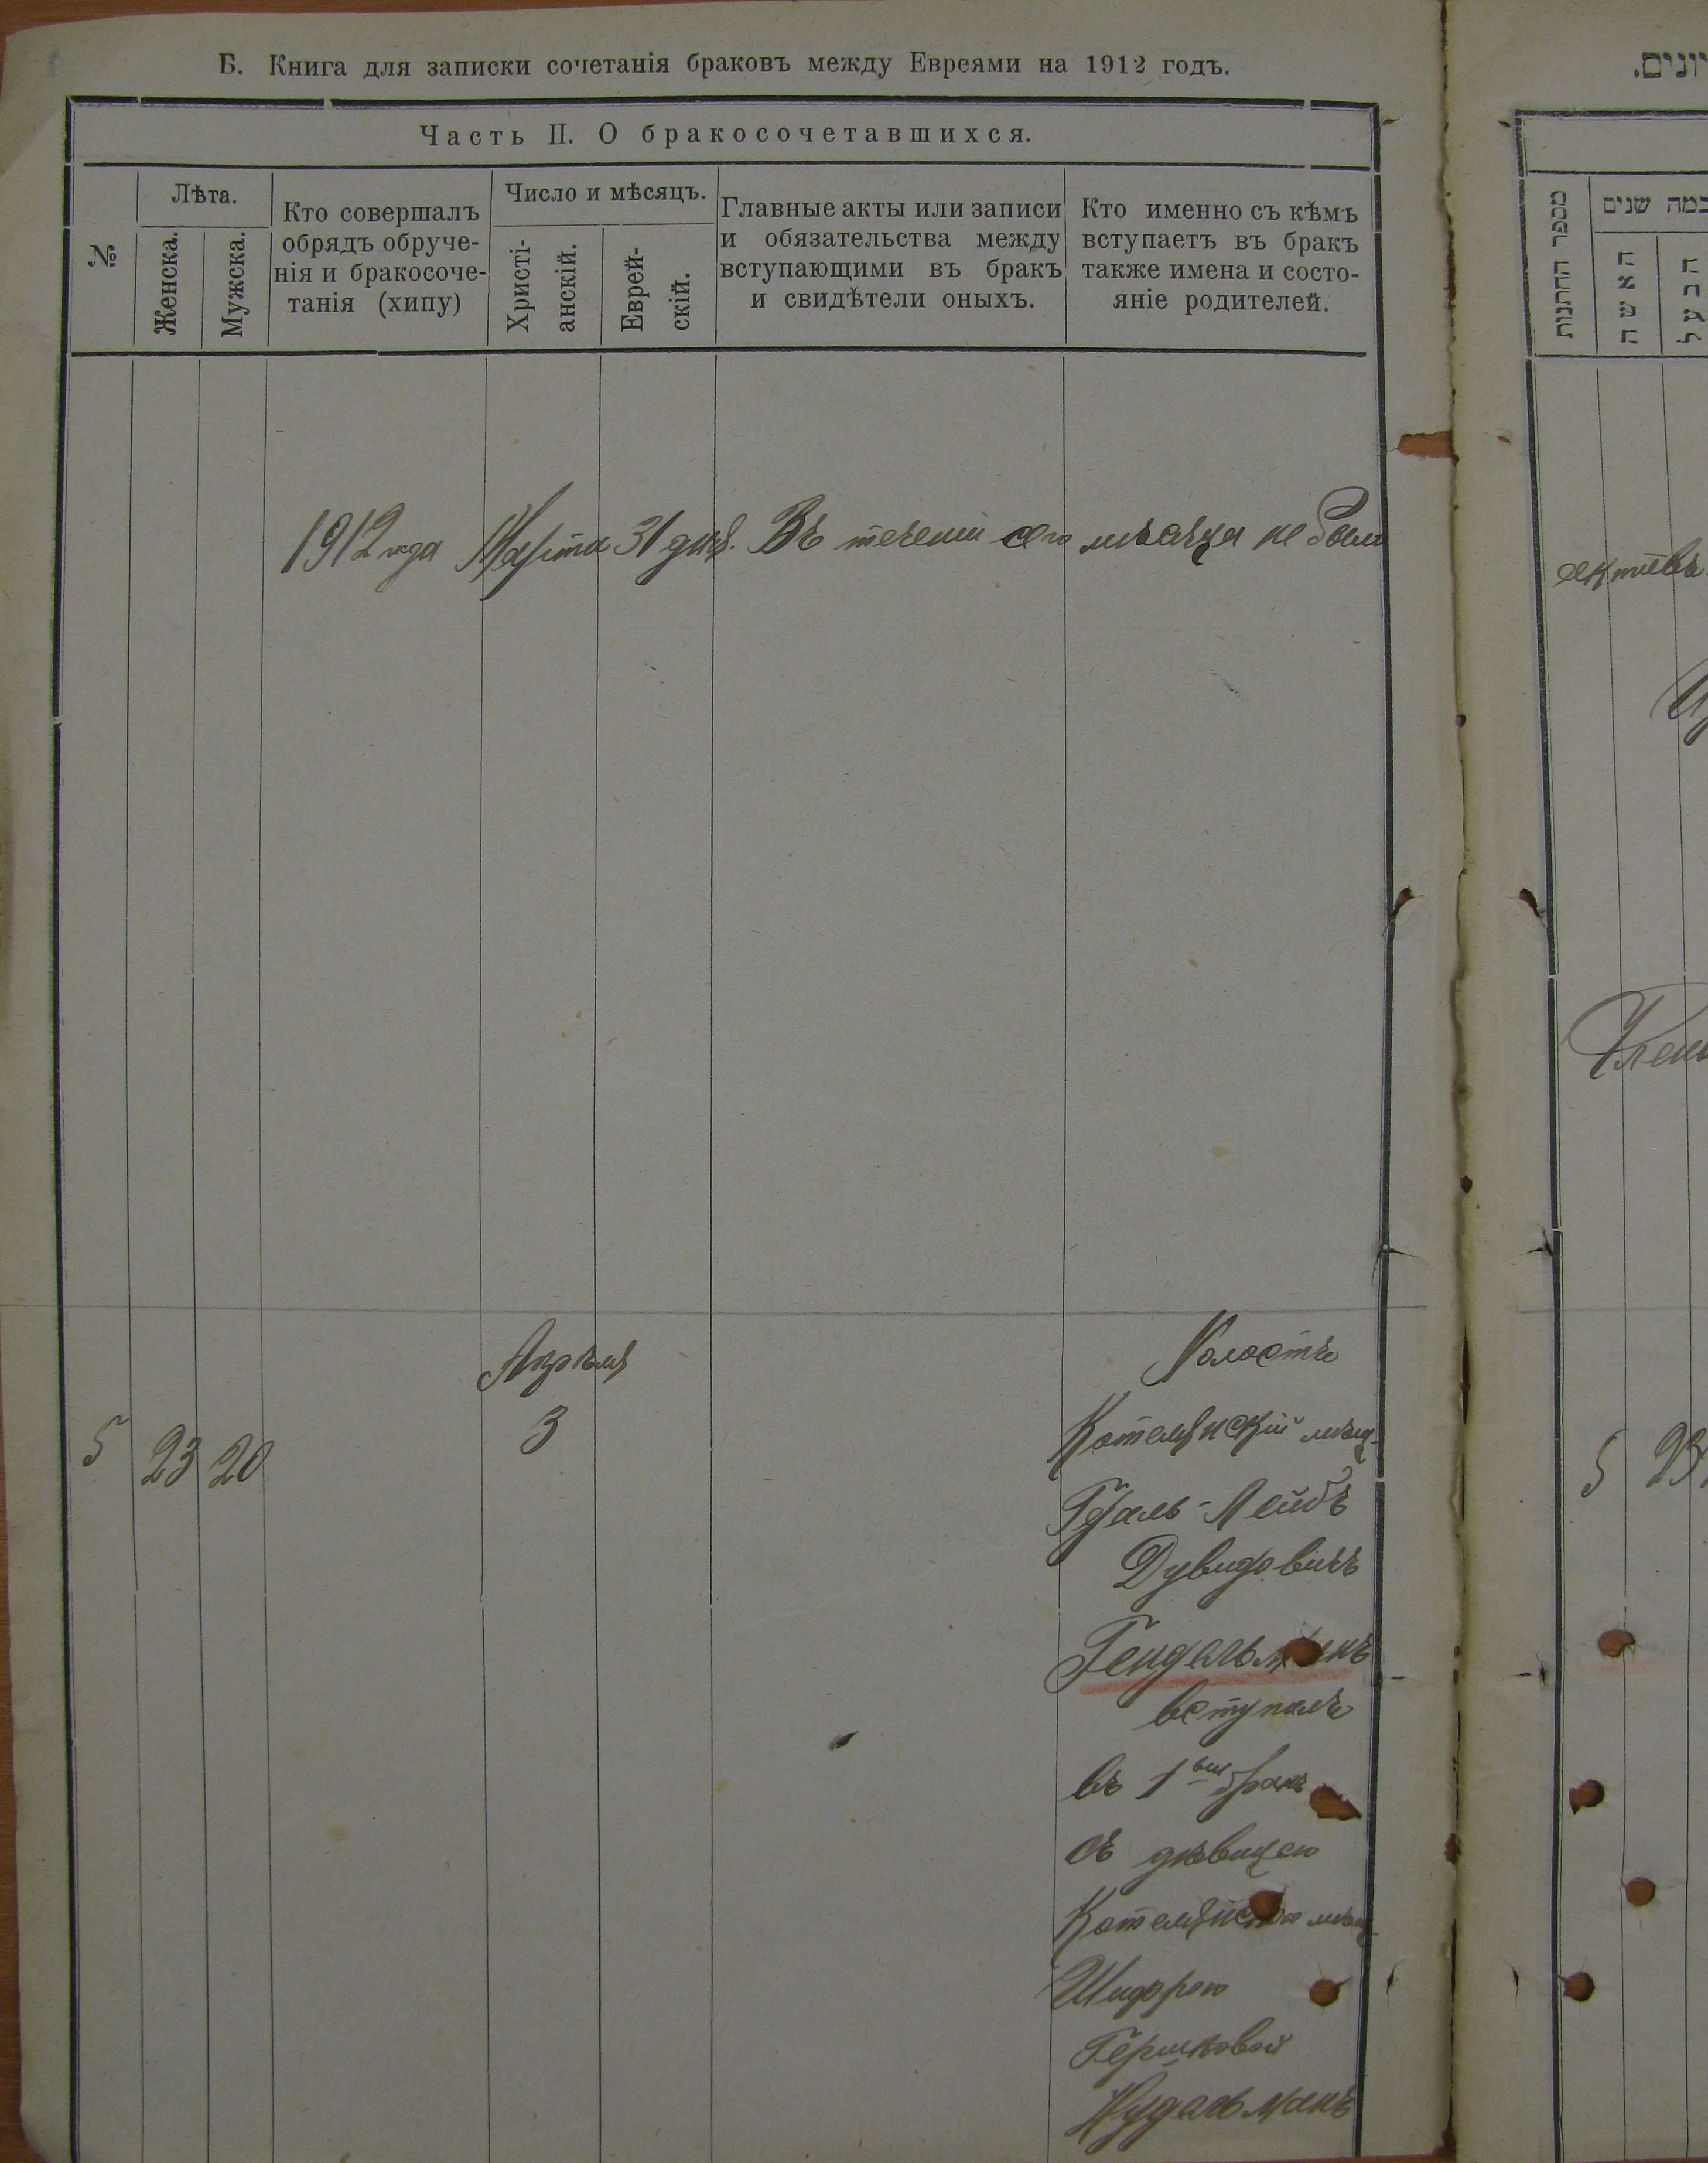 Б. Книга для записки сочетанія браковъ между Евреями на 1912 годъ.
Часть II. О бракосочетавшихся.
№
Лѣта.
Женска.
Мужска.
Кто совершалъ
обрядъ обруче-
нія и бракосоче-
танія (хипу)
Число и мѣсяцъ.
Христі-
анскій.
Еврей-
скій.
Главные акты или записи
и обязательства между
вступающими въ бракъ
и свидѣтели оныхъ.
Кто именно съ кѣмъ
вступаетъ въ бракъ
также имена и состо-
яніе родителей.
1912 года Марта 31 дня. Въ теченіи сего мѣсяца не было
Апрѣля
5 23 20 3
Холостъ
Котелянскій мѣщ.
Лейбъ
Дувидовичъ
Гендельманъ
вступилъ
въ 1ый бракъ
съ дѣвицею
Котелянскою мѣщ.
Шифрою
Гершковой
Нудельманъ
יונים.
מספר החתונות
כמה שנים
האשה
הבעל
актовъ
5 23